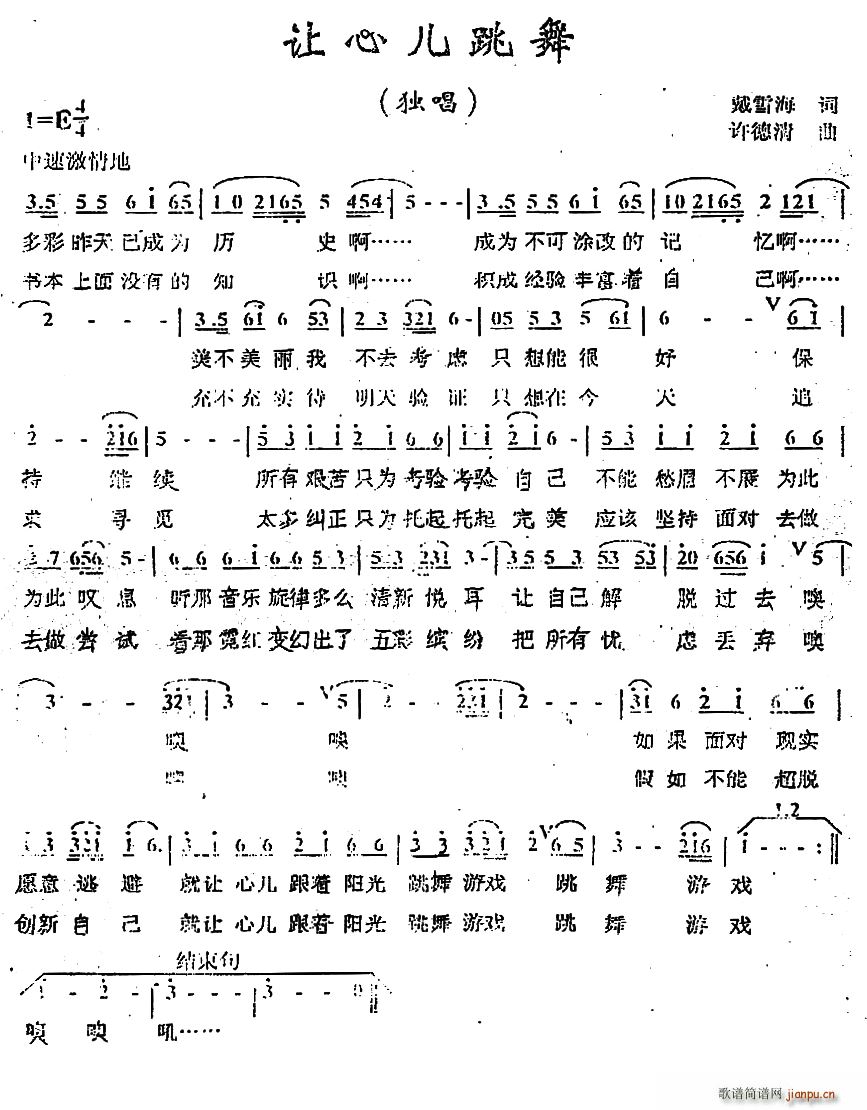 让心儿跳舞
(独唱)
1=E 4/4
戴雪海 词
许德清 曲
中速激情地
3.5 5 5 6 i 65 | 1 0 2165 5 454 | 5 - - - | 3.5 5 5 6 i 65 | 10 2165 2 121 |
多彩昨天已成为 历 史啊…… 成为不可涂改的 记 忆啊……
书本上面没有的 知 识啊…… 积成经验丰富着 自 己啊……
2 - - - | 3.5 6i 6 53 | 2 3 321 6 - | 05 5 3 5 6i | 6 - - V 6 i |
美不美丽我 不去考虑 只想能很 好 保
充不充实待 明天验证 只想在今 天 追
2 - - 216 | 5 - - - | 5 3 i i 2 i 6 6 | i i 2 i 6 - | 5 3 i i 2 i 6 6 |
持 继续 所有艰苦只为考验考验自己 不能愁眉不展为此
求 寻觅 太多纠正只为托起托起完美 应该坚持面对去做
7 656 5 - | 6 6 6 i 6 6 5 3 | 5 3 231 3 - | 35 5 3 53 53 | 20 656 i V 5 |
为此叹息 听那音乐旋律多么 清新悦耳 让自己解 脱过去噢
去做尝试 看那霓红变幻出了 五彩缤纷 把所有忧 虑丢弃噢
3 - - 321 | 3 - - V 5 | 2 - - 231 | 2 - - - | 31 6 2 i 6 6 |
噢 噢 如果面对现实
噢 噢 假如不能超脱
1.2
3 3 321 i 6. | 3 i 6 6 2 i 6 6 | 3 3 321 2 V 65 | 3 - - 216 | i - - - :||
愿意逃避 就让心儿跟着阳光 跳舞游戏 跳 舞 游 戏
创新自己 就让心儿跟着阳光 跳舞游戏 跳 舞 游 戏
结束句
i - 2 - | 3 - - - | 3 - - 0 ||
噢 噢 吼……
歌谱简谱网
jianpu.cn